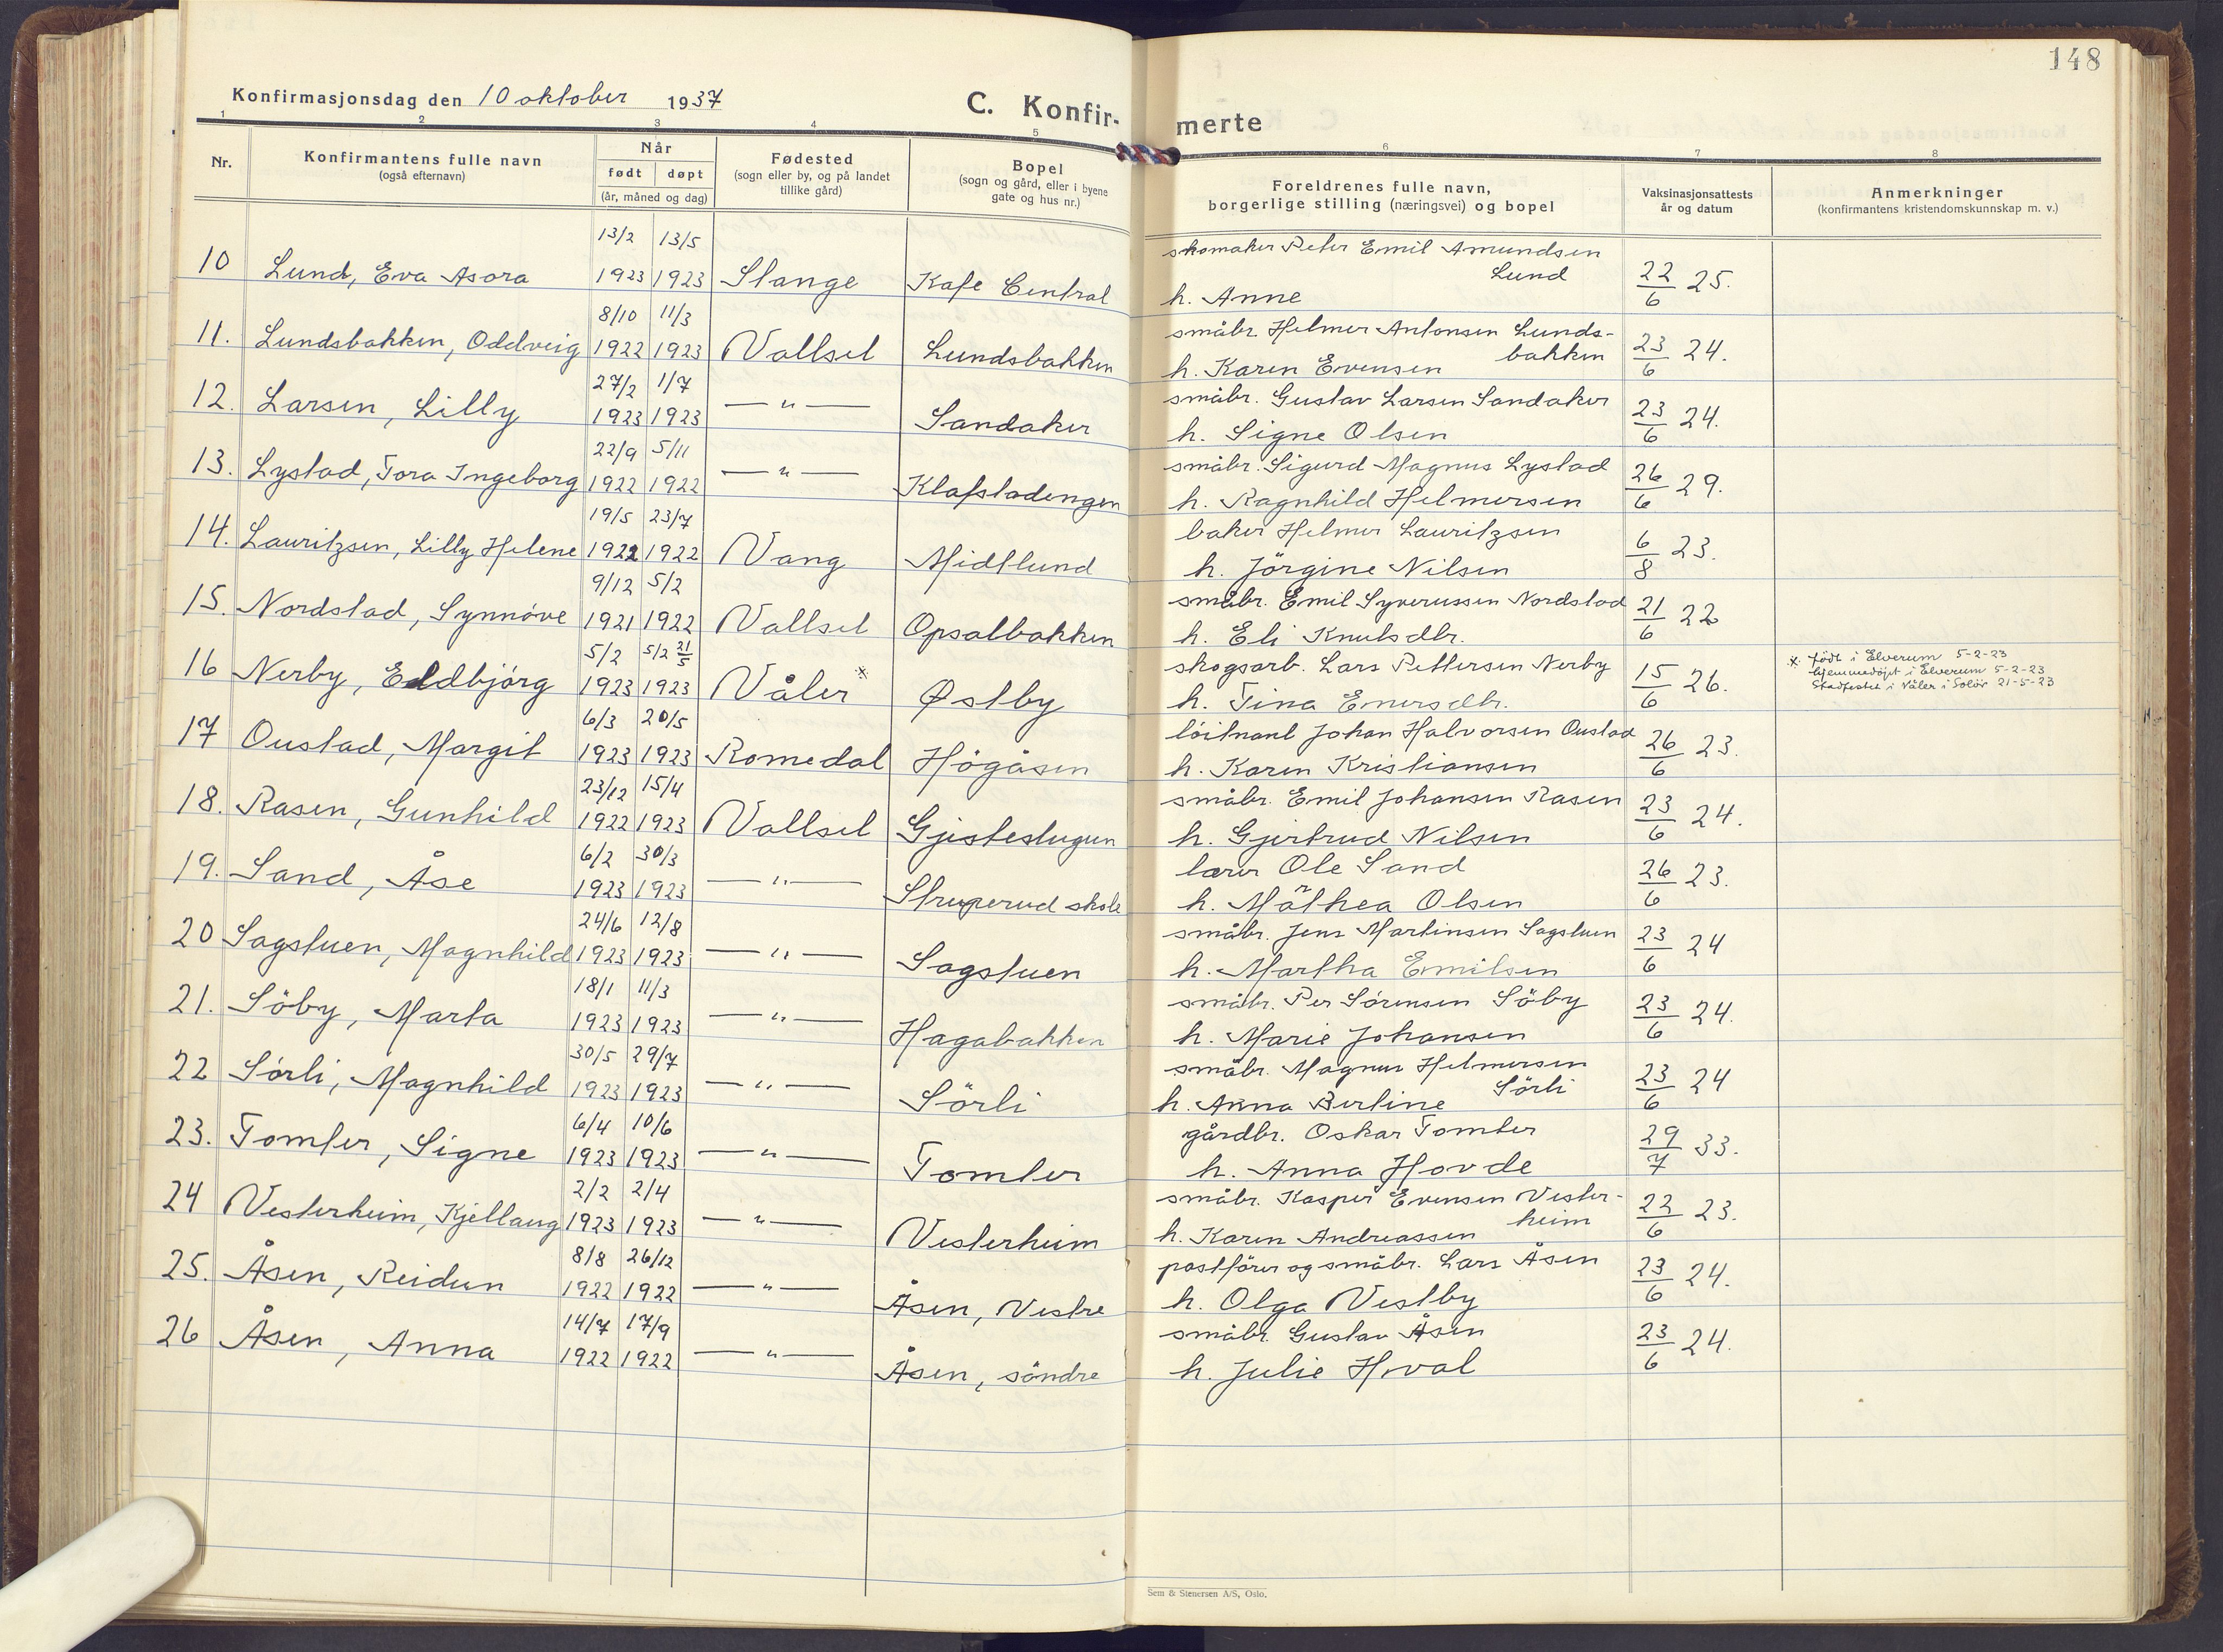 148
Konfirmasjonsdag den 10 oktober 1937
C. Konfirmerte
1 2 3 4 5 6 7 8
Nr.
Konfirmantens fulle navn
(også efternavn)
Når
født døpt
(år, måned og dag)
Fødested
(sogn eller by, og på landet
tillike gård)
Bopel
(sogn og gård, eller i byene
gate og hus nr.)
Foreldrenes fulle navn,
borgerlige stilling (næringsvei) og bopel
Vaksinasjonsattests
år og datum
Anmerkninger
(konfirmantens kristendomskunnskap m. v.)
13/2 13/5 skomaker Peter Emil Amundsen
10 Lund, Eva Asora 1923 1923 Stange Kafe Central Lund 22/6 25.
h. Anne
8/10 11/3 småbr. Helmer Antonsen Lunds-
11. Lundsbakken, Oddveig 1922 1923 Vallset Lundsbakken bakken 23/6 24.
h. Karen Evensen
27/2 1/7 småbr. Gustav Larsen Sandaker
12. Larsen, Lilly 1923 1923 —"— Sandaker h. Signe Olsen 23/6 24.
22/9 5/11 småbr. Sigurd Magnus Lystad
13. Lystad, Tora Ingeborg 1922 1922 —"— Klafstadengen h. Ragnhild Helmersen 26/6 29.
19/5 23/7 baker Helmer Lauritzsen
14. Lauritzsen, Lilly Helene 1922 1922 Vang Midtlund h. Jörgine Nilsen 6/8 23.
9/12 5/2 småbr. Emil Syverussen Nordstad
15. Nordstad, Synnöve 1921 1922 Vallset Opsalbakken h. Eli Knutsdtr. 21/6 22
5/2 5/2 21/5 skogsarb. Lars Pettersen Nerby
16 Nerby, Eldbjörg 1923 1923 Våler* Østby h. Tina Enersdtr. 15/6 26.
* født i Elverum 5-2-23
hjemmedöpt i Elverum 5-2-23
Stadfestet i Våler i Solör 21-5-23
6/3 20/5 löitnant Johan Halvorsen Oustad
17 Oustad, Margit 1923 1923 Romedal Högåsen h. Karen Kristiansen 26/6 23.
23/12 15/4 småbr. Emil Johansen Rasen
18. Rasen, Gunhild 1922 1923 Vallset Gjestestugun h. Gjertrud Nilsen 23/6 24.
6/2 30/3 lærer Ole Sand
19. Sand, Åse 1923 1923 —"— Struperud skole h. Mathea Olsen 26/6 23.
24/6 12/8 småbr. Jens Martinsen Sagstuen
20 Sagstuen, Magnhild 1923 1923 —"— Sagstuen h. Martha Emilsen 23/6 24
18/1 11/3 småbr. Per Sörensen Söby
21. Söby, Marta 1923 1923 —"— Hagabakken h. Marie Johansen 23/6 24.
30/5 29/7 småbr. Magnus Helmersen
22 Sörli, Magnhild 1923 1923 —"— Sörli Sörli 23/6 24
h. Anna Bertine
6/4 10/6 gårdbr. Oskar Tomter
23. Tomter, Signe 1923 1923 —"— Tomter h. Anna Hovde 29/7 33.
2/2 2/4 småbr. Kasper Evensen Vester-
24 Vesterheim, Kjellaug 1923 1923 —"— Vesterheim heim 22/6 23.
h. Karen Andreassen
8/8 26/12 postförer og småbr. Lars Åsen
25. Åsen, Reidun 1922 1922 —"— Åsen, Vestre h. Olga Vestby 23/6 24.
14/7 17/9 småbr. Gustav Åsen
26 Åsen, Anna 1922 1922 —"— Åsen, söndre h. Julie Hval 23/6 24.
Sem & Stenersen A/S, Oslo.